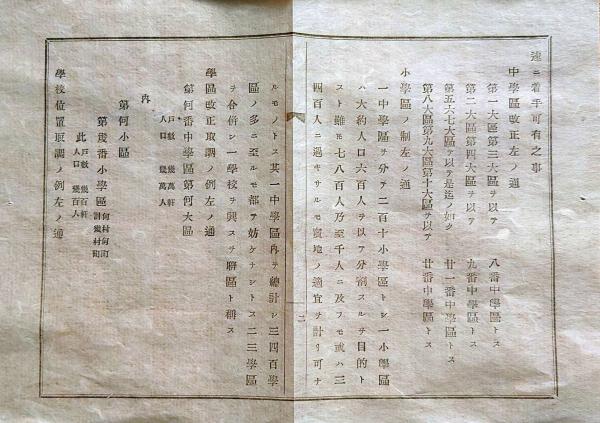 速ニ着手可有之事
中學區改正左ノ通
第一大區第三大區ヲ以テ 八番中學區トス
第二大區第四大區ヲ以テ 九番中學區トス
第五六七大區ヲ以テ是迄ノ如ク 廿一番中學區トス
第八大區第九大區第十大區ヲ以テ 廿番中學區トス
小學區ノ制左ノ通
一中學區ヲ分テ二百十小學區トシ一小學區
ハ大約人口六百人ヲ以テ分割スルヲ目的ト
スト雖モ七八百人乃至千人ニ及フモ或ハ三
四百人ニ過キサルモ實地ノ適宜ヲ計リ可ナ
二
ルモノトス其一中學區內ヲ總計シ三四百學
區ノ多ニ至ルモ都テ妨ケナシトス二三學區
ヲ合併シ一學校ヲ興スヲ聯區ト稱ス
學區改正取調ノ例左ノ通
第何番中學區第何大區
戶數 幾萬軒
人口 幾萬人
內
第何小區
第幾番小學區 何村何町 計幾村町
此 戶數 幾百軒
人口 幾百人
學校位置取調ノ例左ノ通